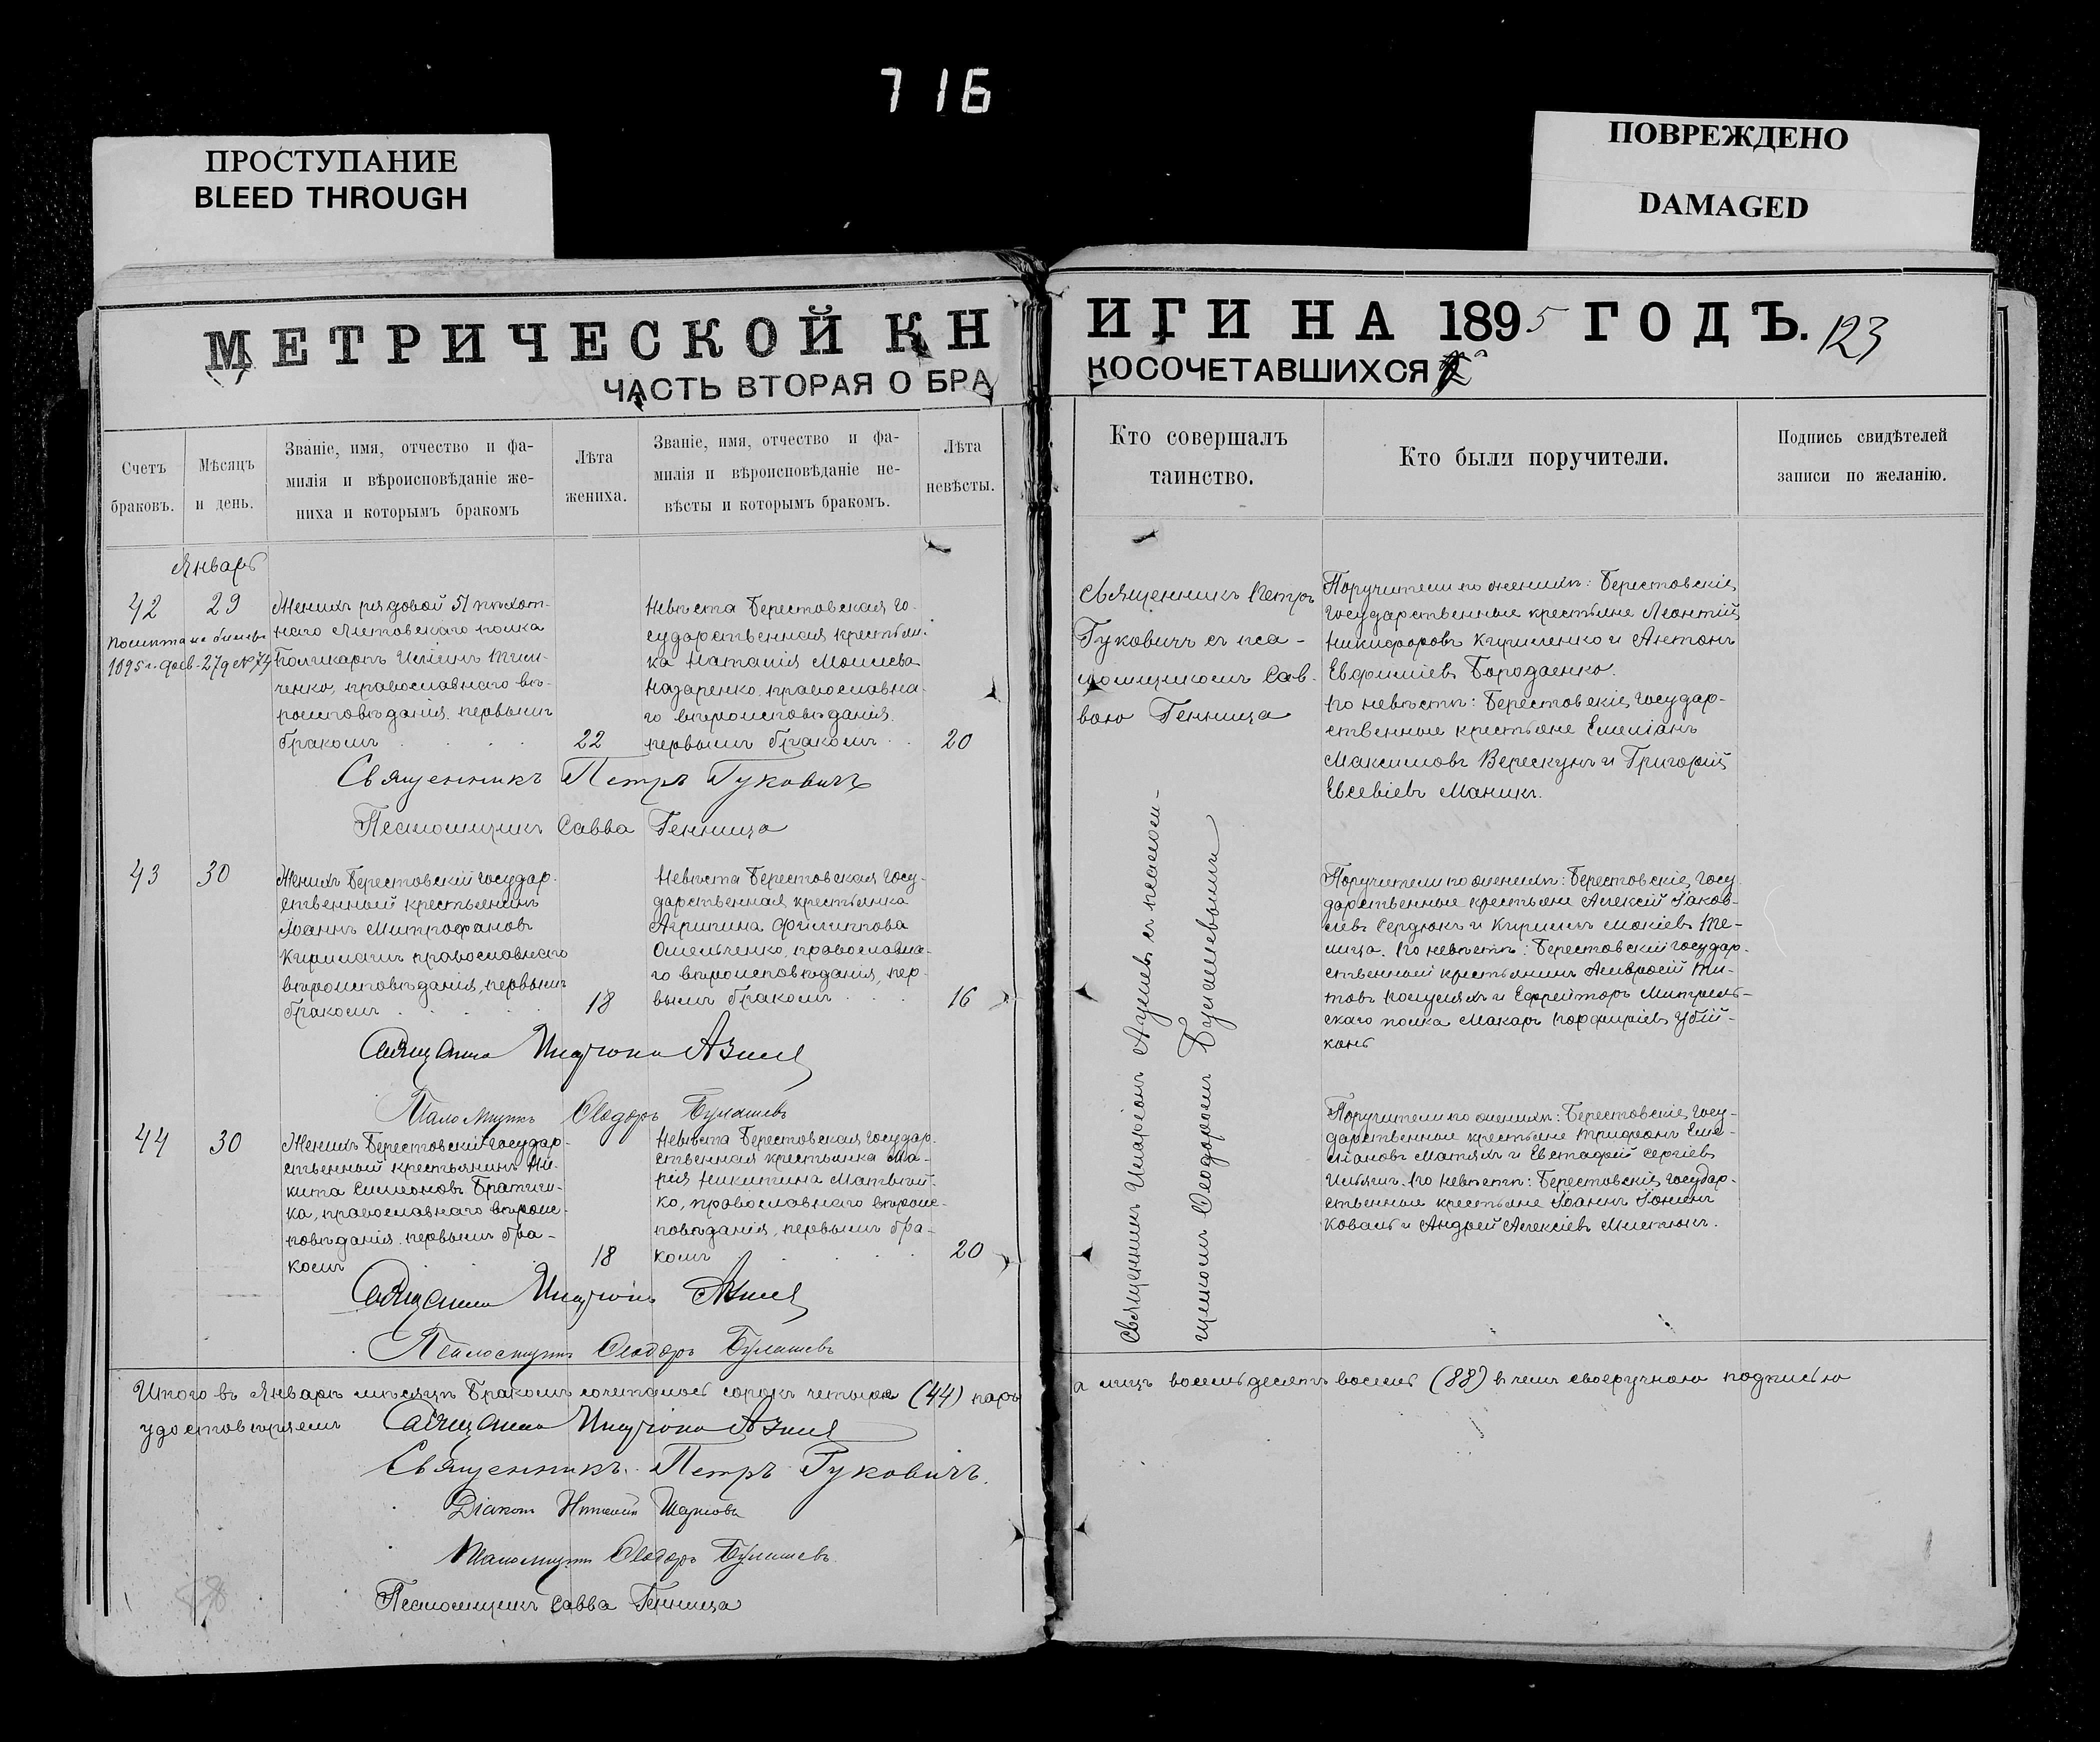 716
ПРОСТУПАНИЕ
BLEED THROUGH
ПОВРЕЖДЕНО
DAMAGED
МЕТРИЧЕСКОЙ КН
ИГИ НА 1895 ГОДЪ.
123
ЧАСТЬ ВТОРАЯ О БРА
КОСОЧЕТАВШИХСЯ
Счетъ
браковъ.
Мѣсяцъ
и день.
Званіе, имя, отчество и фа-
милія и вѣроисповѣданіе же-
ниха и которымъ бракомъ
Лѣта
жениха.
Званіе, имя, отчество и фа-
милія и вѣроисповѣданіе не-
вѣсты и которымъ бракомъ.
Лѣта
невѣсты.
Кто совершалъ
таинство.
Кто были поручители.
Подпись свидѣтелей
записи по желанію.
Январь
42
29
1895 г. фев. 27 д № 74
Женихъ рядовой 51 пѣхот-
наго Литовскаго полка
Поликарпъ
ченко, православнаго вѣ-
роисповѣданія, первымъ
бракомъ
22
Невѣста Берестовская го-
сударственная крестьян-
ка Наталія Моисеева
Назаренко, православна-
го вѣроисповѣданія,
первымъ бракомъ
20
Священникъ Петръ Гуковичъ
Псаломщикъ Савва Генница
Священникъ Петръ
Гуковичъ съ пса-
ломщикомъ Сав-
вою Генница
Поручители по женихѣ: Берестовскіе
государственные крестьяне Леонтій
Никифоровъ Кириленко и Антонъ
Евфиміевъ Бородаенко.
По невѣстѣ: Берестовскіе государ-
ственные крестьяне Емеліанъ
Максимовъ Верескунъ и Григорій
Евсевіевъ Маникъ.
43
30
Женихъ Берестовскій государ-
ственный крестьянинъ
Іоаннъ Митрофановъ
православнаго
вѣроисповѣданія, первымъ
бракомъ
18
Невѣста Берестовская госу-
дарственная крестьянка
Агрипина Филиппова
Омельченко, православна-
го вѣроисповѣданія, пер-
вымъ бракомъ
16
Священникъ Иларіонъ
Псаломщикъ Ѳеодоръ Булашевъ
Поручители по женихѣ: Берестовскіе госу-
дарственные крестьяне Алексій Іаков-
левъ Сердюкъ и Кириллъ Мокіевъ Те-
лица. По невѣстѣ: Берестовскій государ-
ственный крестьянинъ Амвросій Ти-
товъ и Ефрейторъ
скаго полка Макаръ Порфиріевъ Убій-
конь
44
30
Женихъ Берестовскій государ-
ственный крестьянинъ Ни-
кита Симеоновъ
ка, православнаго вѣроис-
повѣданія, первымъ бра-
комъ
18
Невѣста Берестовская государ-
ственная крестьянка Ма-
рія Никитина Матвій-
ко, православнаго вѣроис-
повѣданія, первымъ бра-
комъ
20
Священникъ Иларіонъ
Псаломщикъ Ѳеодоръ Булашевъ
Священникъ Иларіонъ съ псалом-
щикомъ Ѳеодоромъ Булашевымъ
Поручители по женихѣ: Берестовскіе госу-
дарственные крестьяне Трифонъ Еме-
ліановъ Матяхъ и Евстафій Сергіевъ
Ильяшъ. По невѣстѣ: Берестовскіе государ-
ственные крестьяне Іоаннъ Іонинъ
Коваль и Андрей Алексіевъ Милютинъ.
Итого въ Январѣ мѣсяцѣ бракомъ сочеталось сорокъ четыре (44) паръ
а лицъ восемьдесятъ восемь (88) въ чемъ своеручною подписью
удостовѣряемъ
Священникъ Иларіонъ
Священникъ Петръ Гуковичъ.
Діаконъ
Псаломщикъ Ѳеодоръ Булашевъ
Псаломщикъ Савва Генница